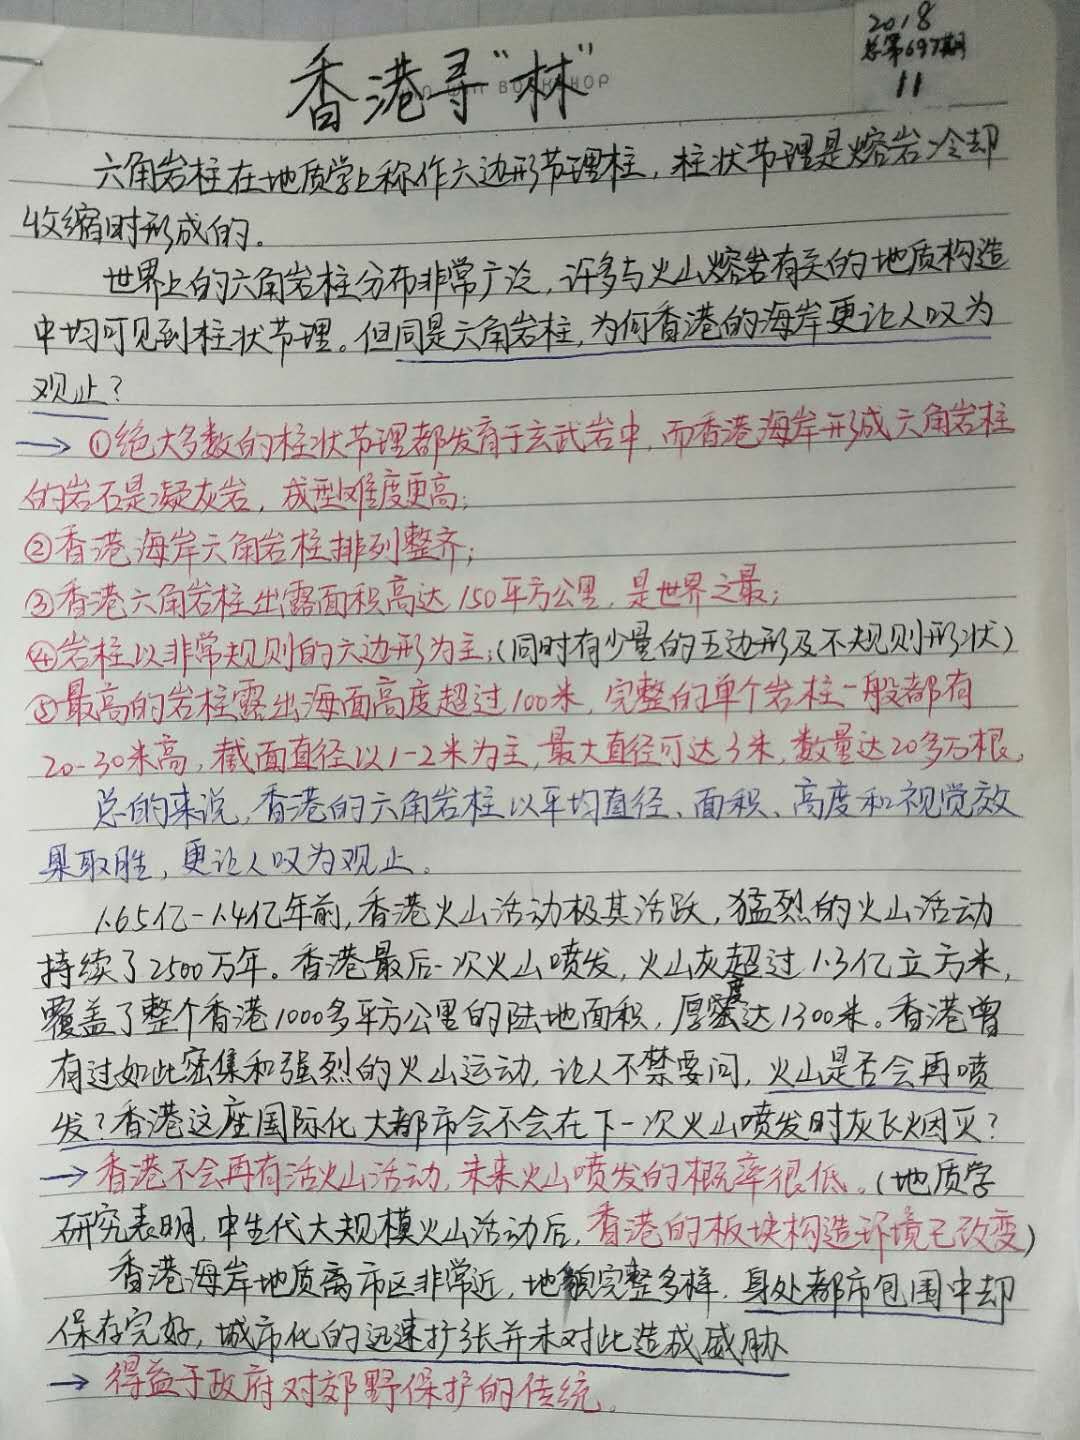 2018
总第697期
11
香港寻“林”
六角岩柱在地质学上称作六边形节理柱，柱状节理是熔岩冷却
收缩时形成的。
世界上的六角岩柱分布非常广泛，许多与火山熔岩有关的地质构造
中均可见到柱状节理。但同是六角岩柱，为何香港的海岸更让人叹为
观止？
→①绝大多数的柱状节理都发育于玄武岩中，而香港海岸形成六角岩柱
的岩石是凝灰岩，成型难度更高；
②香港海岸六角岩柱排列整齐；
③香港六角岩柱出露面积高达150平方公里，是世界之最；
④岩柱以非常规则的六边形为主；（同时有少量的五边形及不规则形状）
⑤最高的岩柱露出海面高度超过100米，完整的单个岩柱一般都有
20-30米高，截面直径以1-2米为主，最大直径可达3米，数量达20多万根。
总的来说，香港的六角岩柱以平均直径、面积、高度和视觉效
果取胜，更让人叹为观止。
1.65亿-1.4亿年前，香港火山活动极其活跃，猛烈的火山活动
持续了2500万年。香港最后一次火山喷发，火山灰超过1.3亿立方米，
覆盖了整个香港1000多平方公里的陆地面积，厚度达1300米。香港曾
有过如此密集和强烈的火山运动，让人不禁要问，火山是否会再喷
发？香港这座国际化大都市会不会在下一次火山喷发时灰飞烟灭？
→香港不会再有活火山活动，未来火山喷发的概率很低。（地质学
研究表明，中生代大规模火山活动后，香港的板块构造环境已改变）
香港海岸地质离市区非常近，地貌完整多样，身处都市包围中却
保存完好，城市化的迅速扩张并未对此造成威胁
→得益于政府对郊野保护的传统。